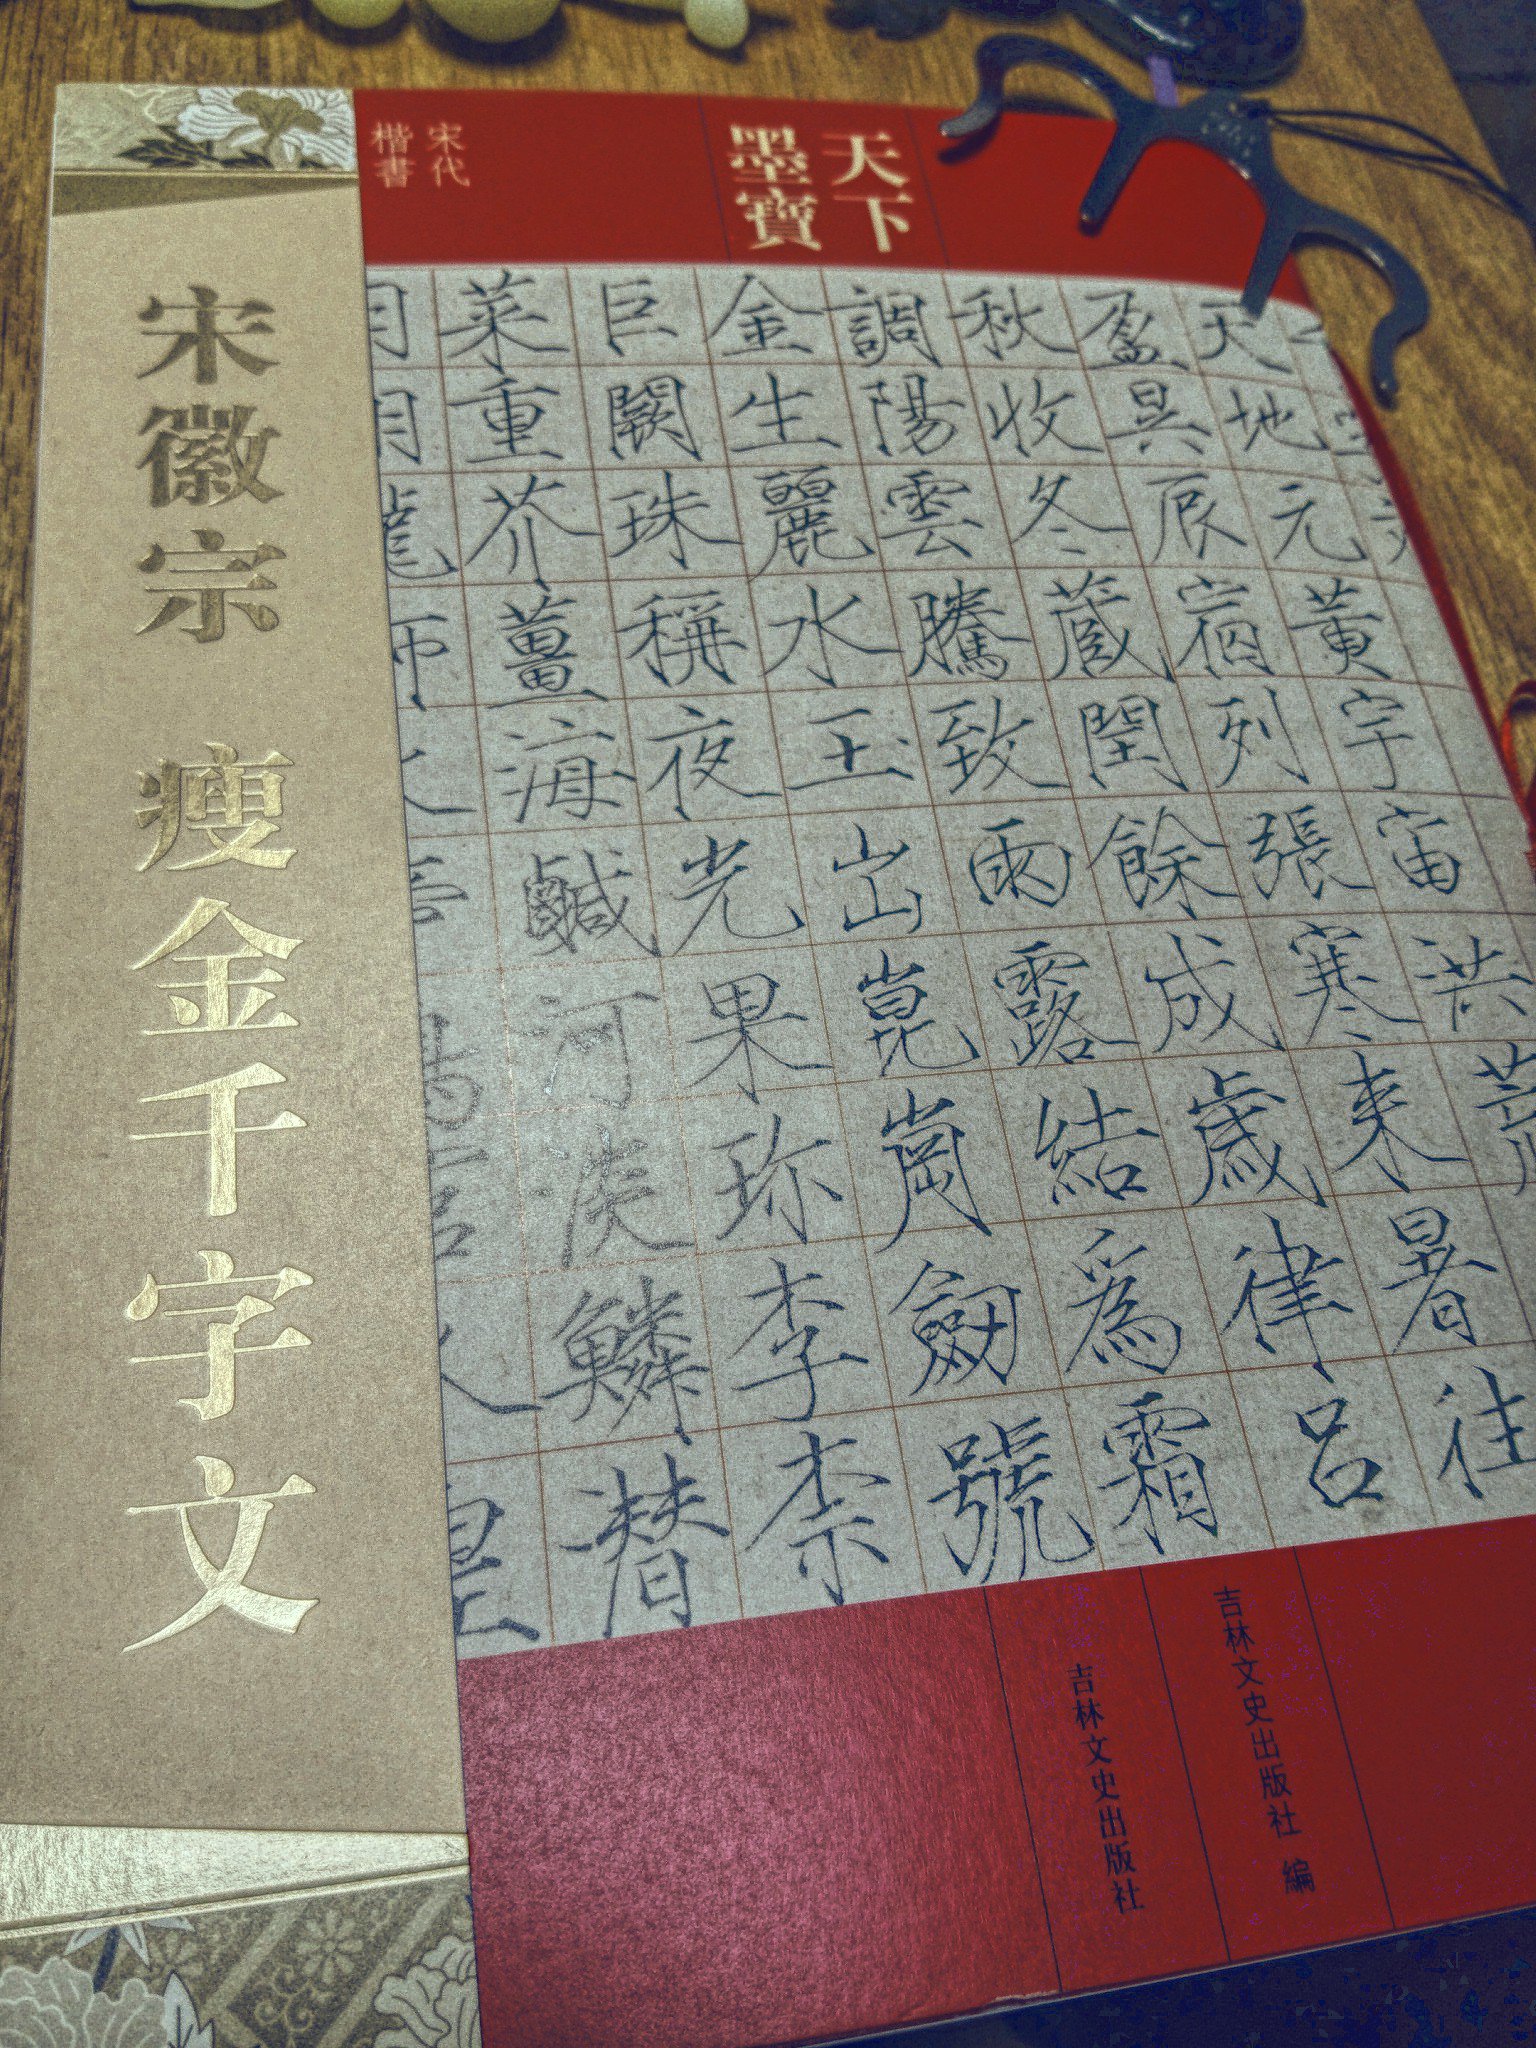 宋徽宗 瘦金千字文
宋代
楷書
天下
墨寶
天地元黃宇宙洪荒
盈昃辰宿列張寒来暑往
秋收冬蔵閏餘成歲律呂
調陽雲騰致雨露結爲霜
金生麗水玉出崑崗劒號
巨闕珠稱夜光果珎李柰
菜重芥薑海鹹河淡鱗潜
吉林文史出版社 編
吉林文史出版社